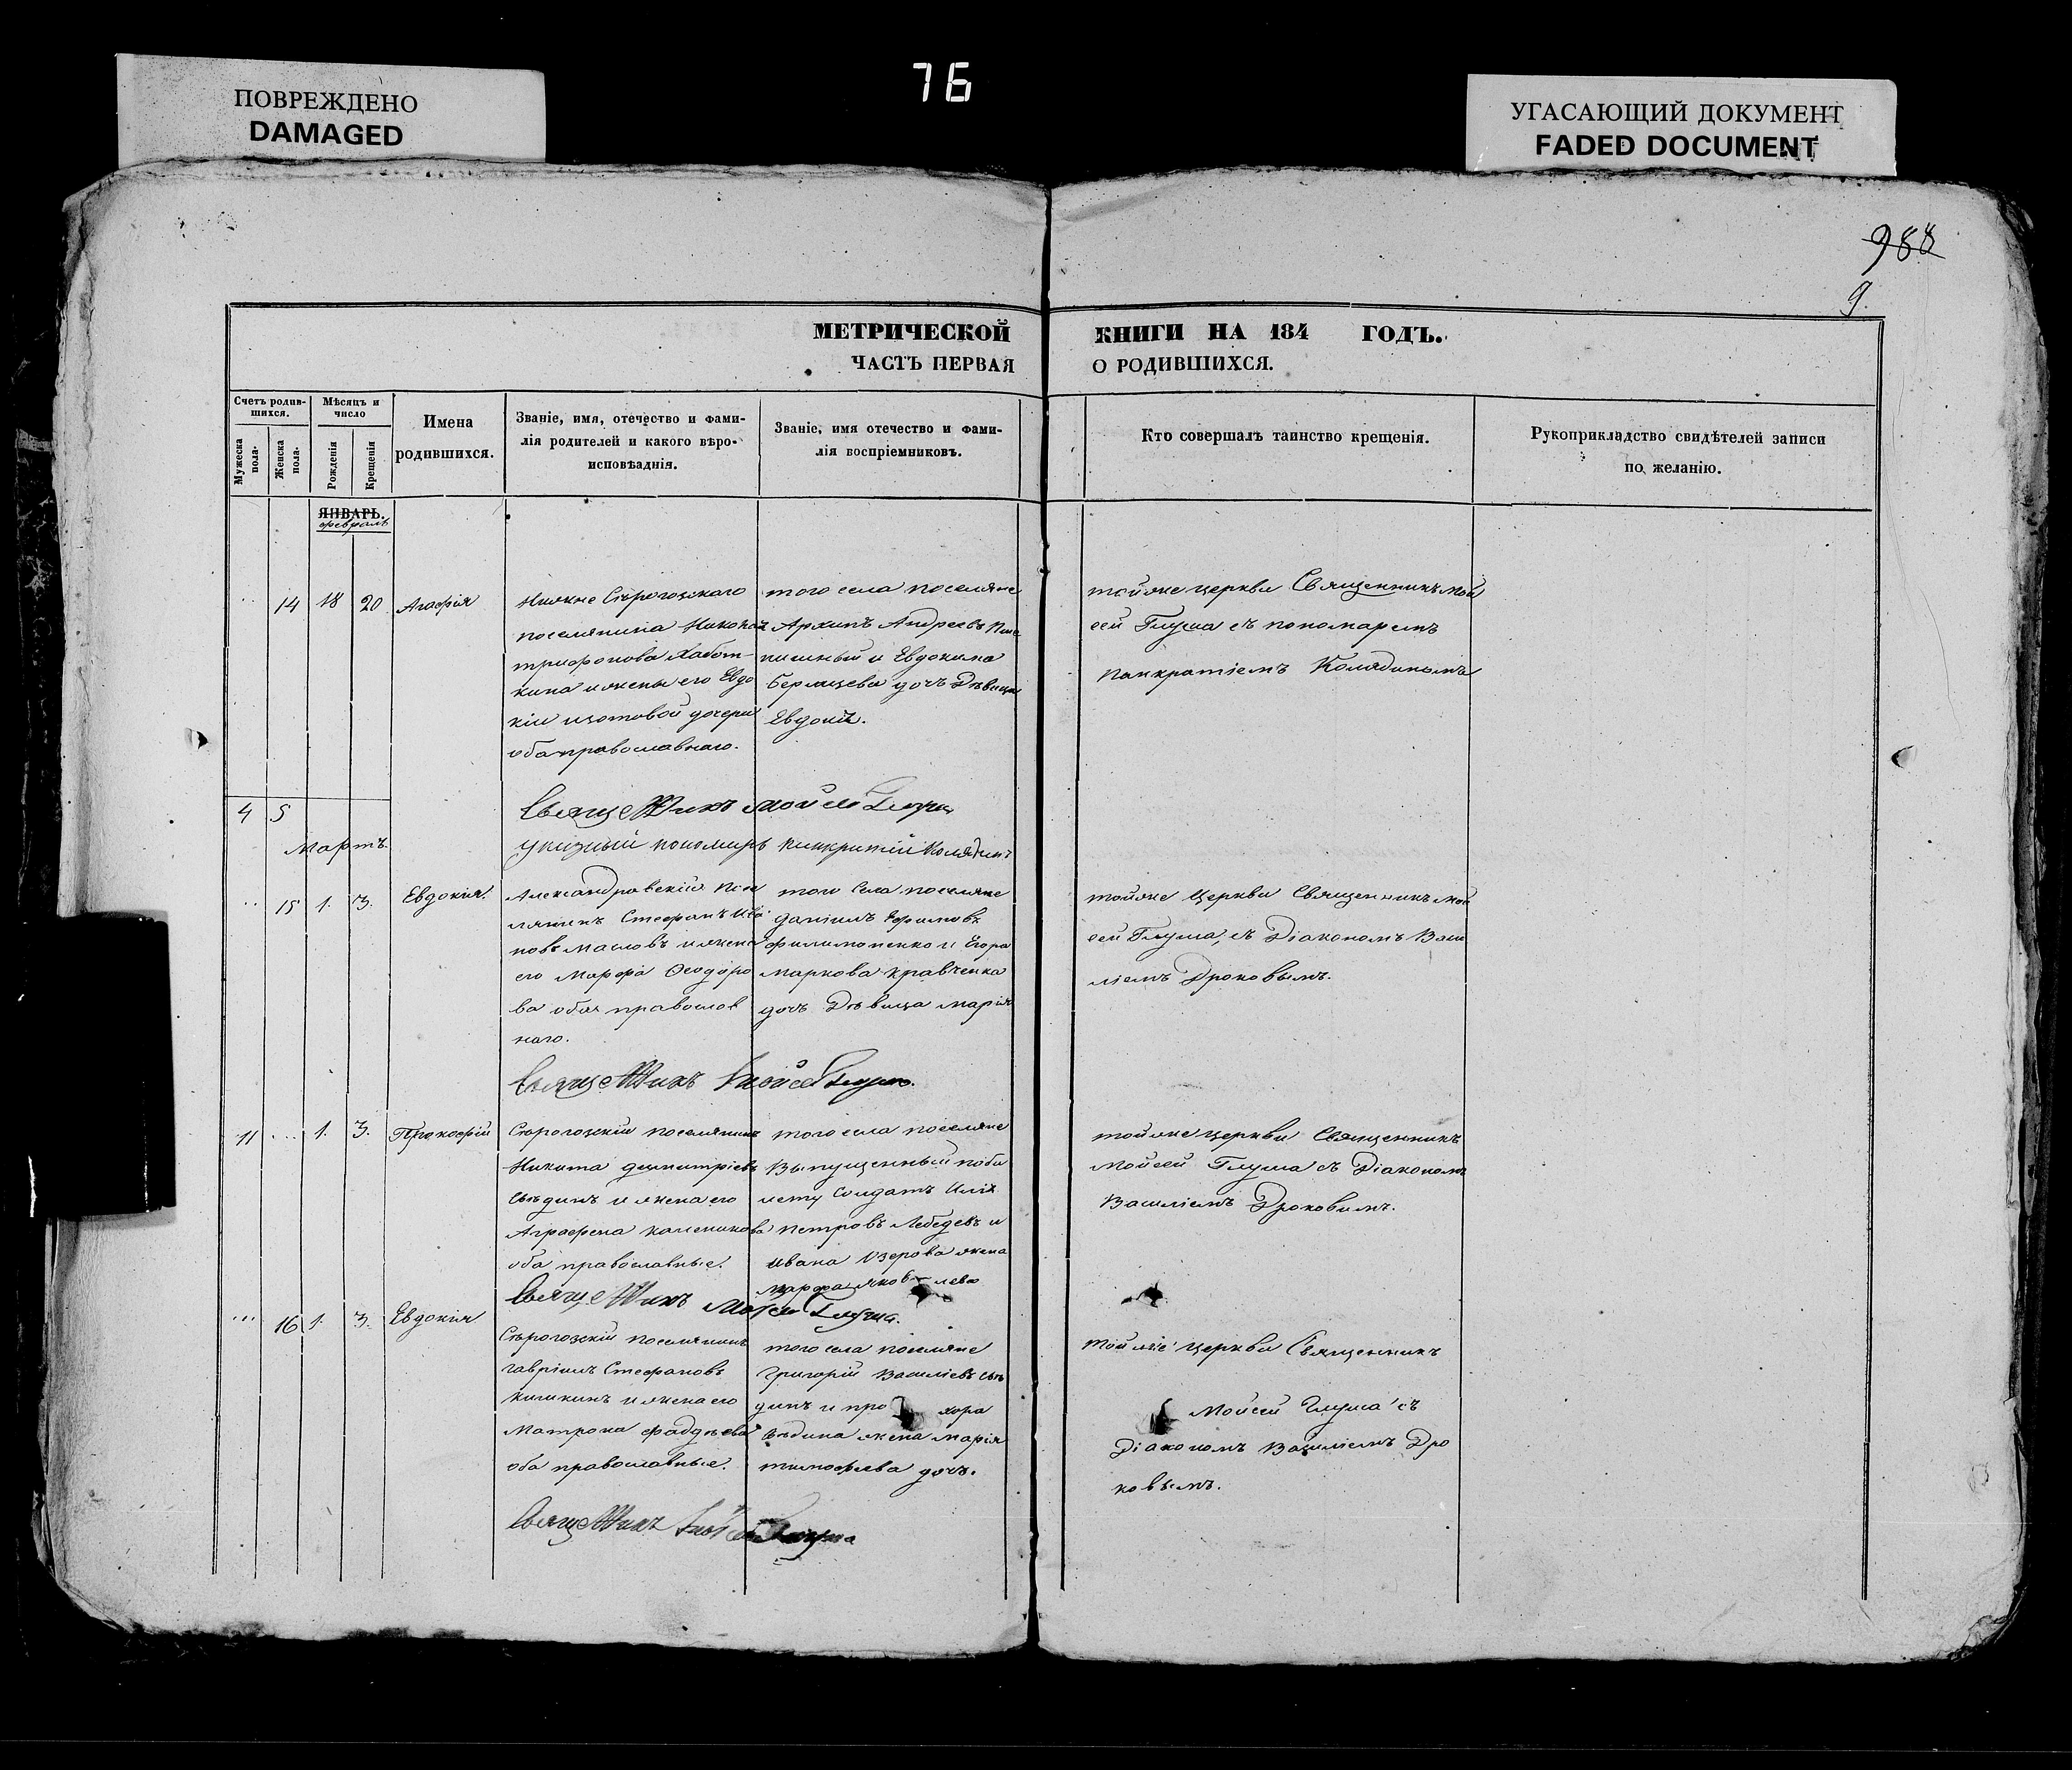 ПОВРЕЖДЕНО
DAMAGED
76
УГАСАЮЩИЙ ДОКУМЕНТ
FADED DOCUMENT
988
9.
МЕТРИЧЕСКОЙ КНИГИ НА 184 ГОДЪ.
ЧАСТЬ ПЕРВАЯ О РОДИВШИХСЯ.
Счетъ родив-
шихся.
Мужеска
пола.
Женска
пола.
Мѣсяцъ и
число
Рожденія
Крещенія
Имена
родившихся.
Званіе, имя, отечество и фами-
лія родителей и какого вѣро-
исповѣданія.
Званіе, имя отечество и фами-
лія воспріемниковъ.
Кто совершалъ таинство крещенія.
Рукоприкладство свидѣтелей записи
по желанію.
ЯНВАРЬ.
февраль
14 18 20 Агафія
Нижне Сѣрогозскаго
поселянина
Трифонова
кина и жены его Евдо
кіи Изотовой дочери
оба православнаго.
того села поселяне
Архипъ Андреевъ
и Евдокима
дочь Дѣвица
Евдокія.
тойже церкви Священникъ Мой
сей Глуша съ пономаремъ
Панкратіемъ Колядинымъ
4 5
Священникъ Мойсей Глуша
указный пономарь Панкратій Колядинъ
Мартъ
15 1. 3. Евдокія.
Александровскій посе
лянинъ Стефанъ Ива
новъ Масловъ и жена
его Марфа Феодоро
ва оба православ
наго.
того села поселяне
Даніилъ Ефимовъ
Филимоненко и Егора
Маркова Кравченка
дочь Дѣвица Марія
тойже церкви Священникъ Мой
сей Глуша, съ Діакономъ Васи
ліемъ Дроковымъ.
Священникъ Мойсей Глуша.
11 ... 1. 3. Прокофій
Сѣрогозскій поселянинъ
Никита Димитріевъ
Сѣдинъ и жена его
Аграфена Калеников
оба православные.
того села поселяне
Выпущенный поби
лету Солдатъ Илія
Петровъ Лебедевъ и
Ивана Озерова жена
Марфа Яковлева
тойже церкви Священникъ
Мойсей Глуша съ Діакономъ
Василіемъ Дроковымъ.
Священникъ Мойсей Глуша.
... 16 1. 3. Евдокія
Сѣрогозскій поселянинъ
Гавріилъ Стефановъ
Кишкинъ и жена его
Матрона Фаддѣева
оба православные.
того села поселяне
Григорій Василіевъ Сѣ
динъ и Про хора
Сѣдина жена Марія
Тимофѣева дочь.
тойже церкви Священникъ
Мойсей Глуша съ
Діакономъ Василіемъ Дро
ковымъ.
Священникъ Мойсей Глуша